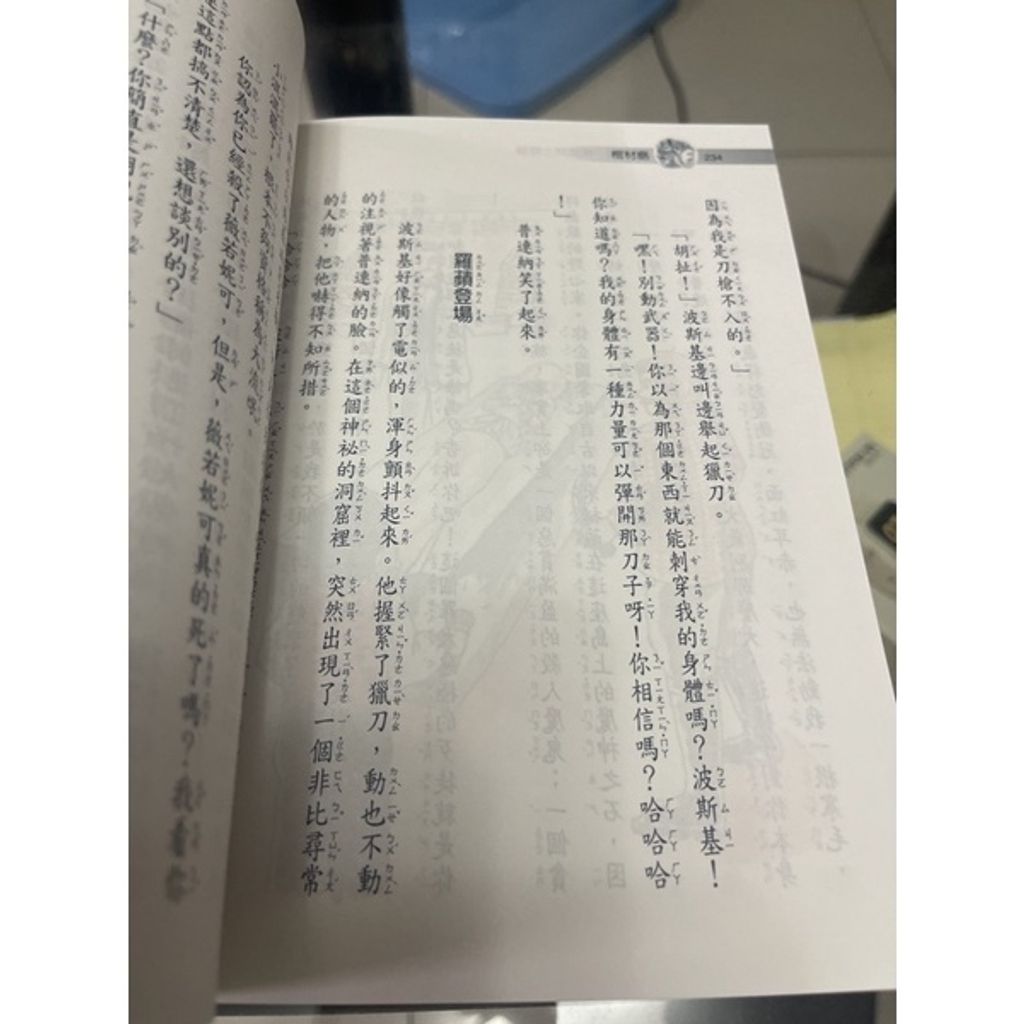 棺材島
234
因為我是刀槍不入的。」
「胡扯!」波斯基邊叫邊舉起獵刀。
「嘿!別動武器!你以為那個東西就能刺穿我的身體嗎?波斯基!
你知道嗎?我的身體有一種力量可以彈開那刀子呀!你相信嗎?哈哈哈
!」
普連納笑了起來。
羅蘋登場
波斯基好像觸了電似的,渾身顫抖起來。他握緊了獵刀,動也不動
的注視著普連納的臉。在這個神祕的洞窟裡,突然出現了一個非比尋常
的人物,把他嚇得不知所措。
你認為你已經殺了薇若妮可,但是,薇若妮可真的死了嗎?我看你
這點都搞不清楚,還想談別的?」
「什麼?你簡直